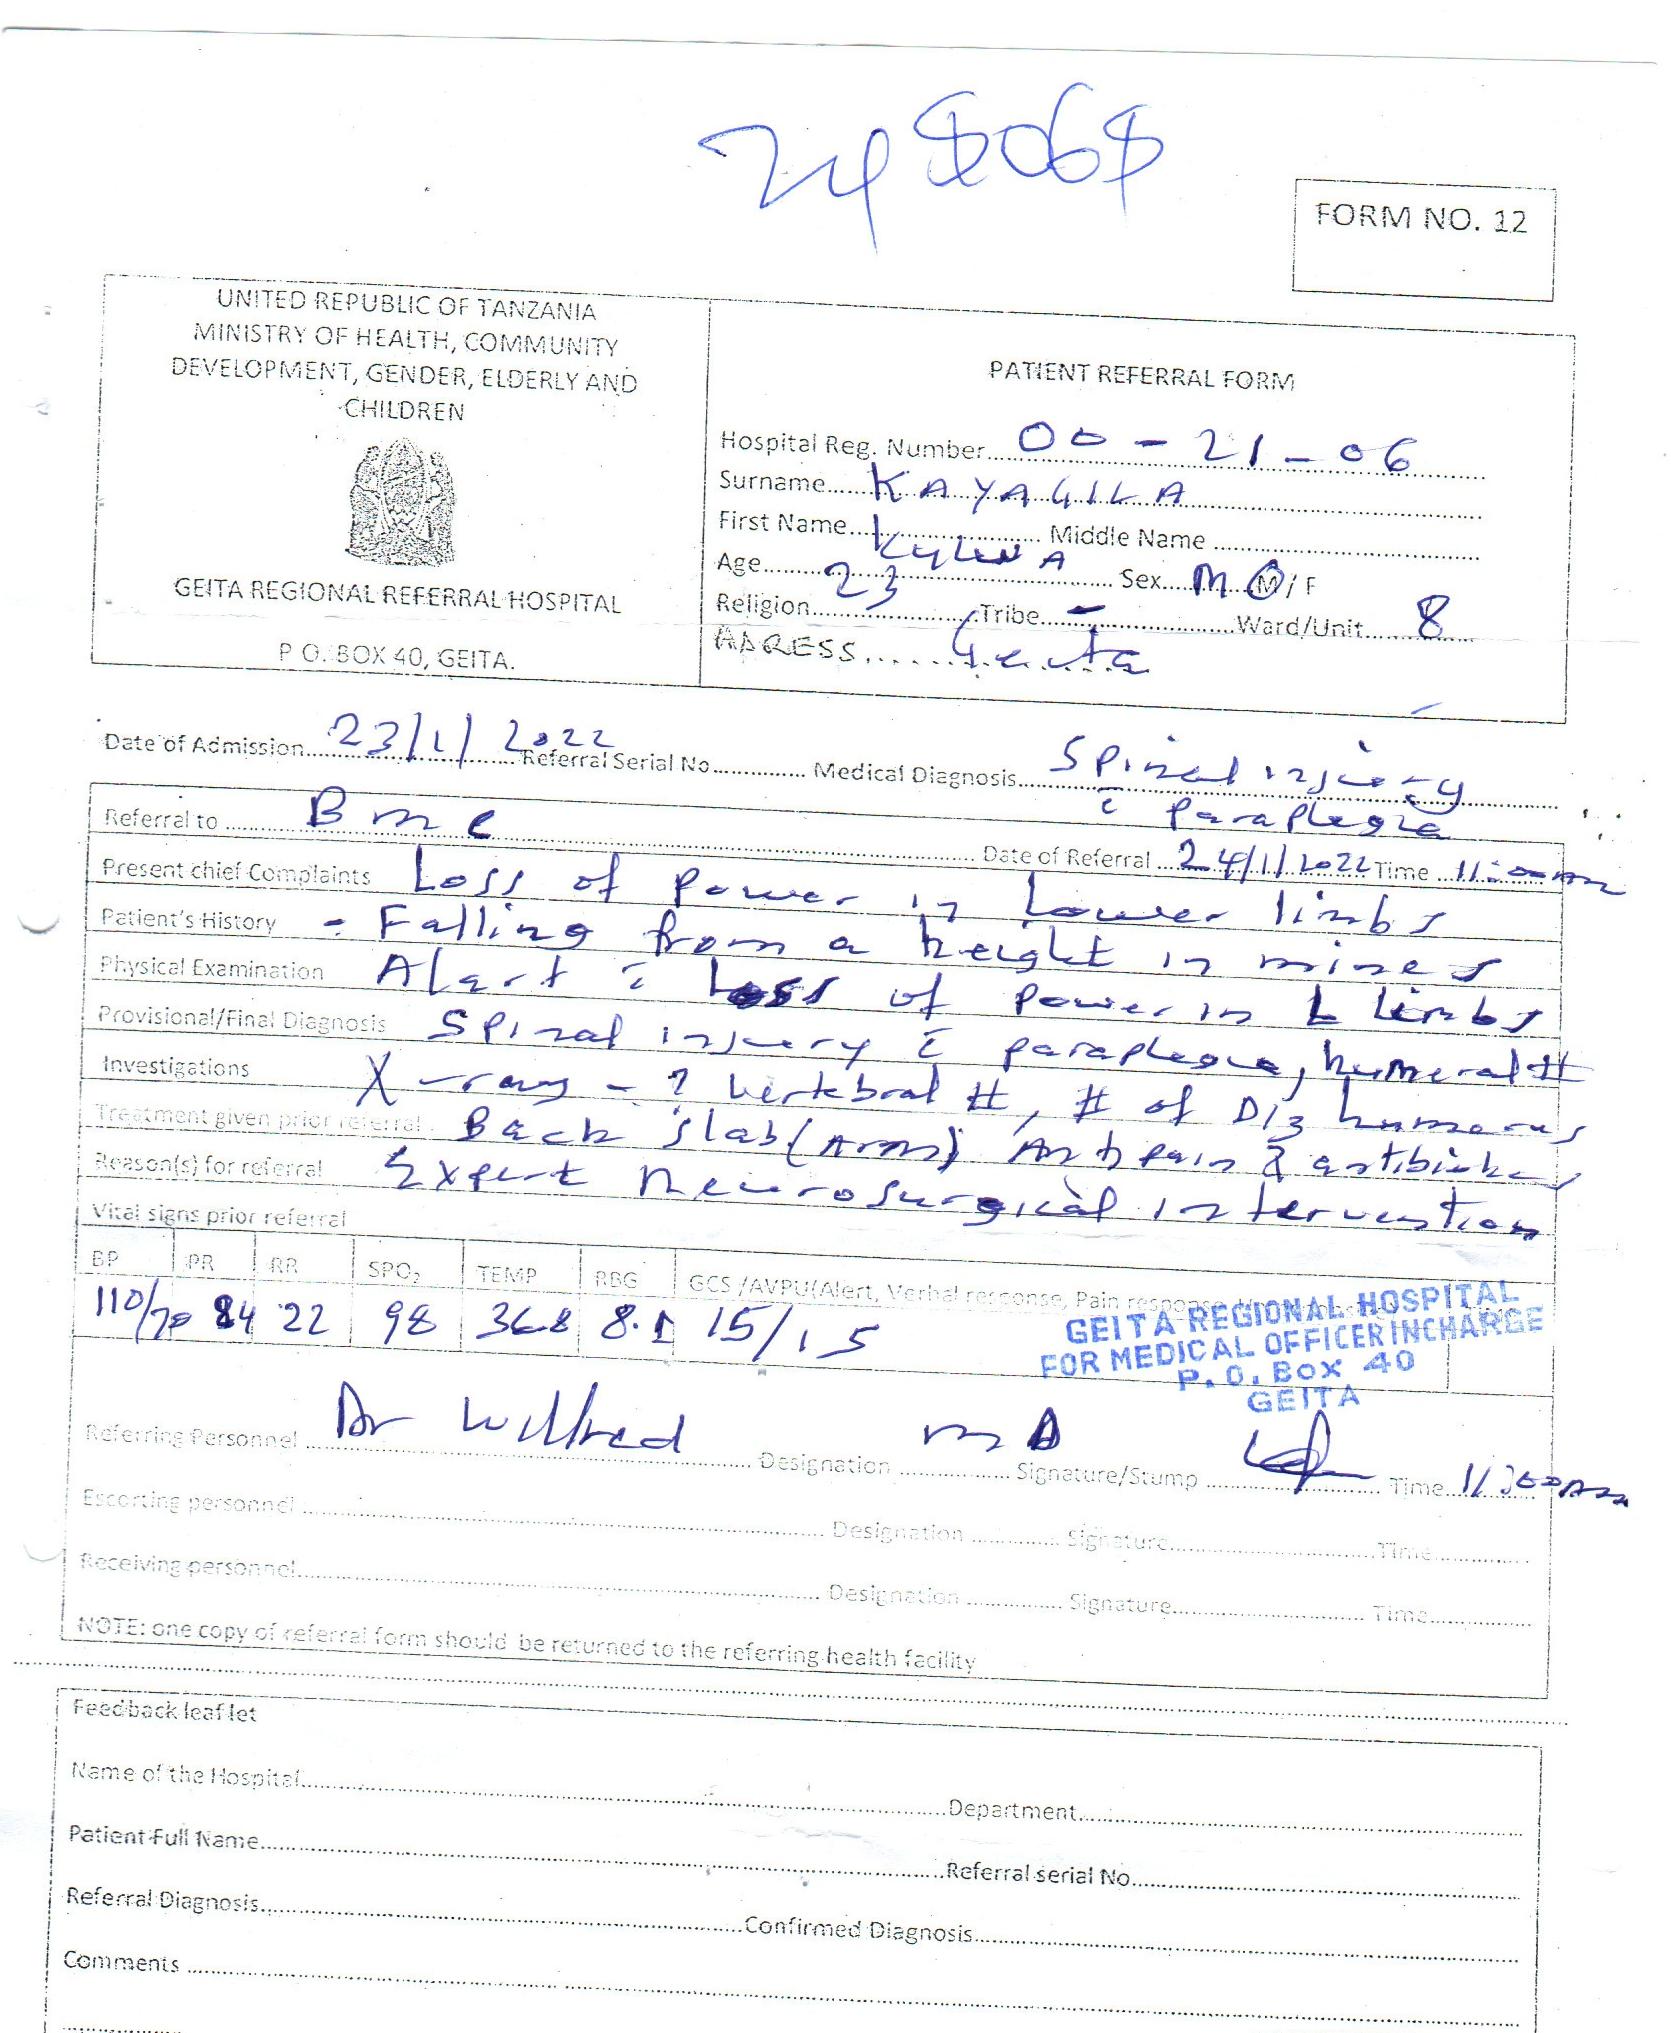 FORM NO. 12
UNITED REPUBLIC OF TANZANIA
MINISTRY OF HEALTH, COMMUNITY
DEVELOPMENT, GENDER, ELDERLY AND
CHILDREN
GEITA REGIONAL REFERRAL HOSPITAL
P O. BOX 40, GEITA.
PATIENT REFERRAL FORM
Hospital Reg. Number 00 - 21 - 06
Surname KAYAGILA
First Name Middle Name
Age 23 Sex M M / F
Religion Tribe - Ward/Unit 8
ADRESS Geita
Date of Admission 23/1/2022 Referral Serial No Medical Diagnosis Spinal injury
c̄ paraplegia
Referral to BMC Date of Referral 24/1/2022 Time 11:00am
Present chief Complaints Loss of power in lower limbs
Patient's History - Falling from a height in mines
Physical Examination Alert c̄ loss of power in L limbs
Provisional/Final Diagnosis Spinal injury c̄ paraplegia, humeral #
Investigations X-ray - ? vertebral #, # of D/3 humerus
Treatment given prior referral Back slab (Arm) Antipain & antibiotics
Reason(s) for referral Expert neurosurgical intervention
Vital signs prior referral
BP PR RR SPO₂ TEMP RBG GCS /AVPU(Alert, Verbal response, Pain response,
110/70 84 22 98 36.8 8.1 15/15
GEITA REGIONAL HOSPITAL
FOR MEDICAL OFFICER INCHARGE
P. O. Box 40
GEITA
Referring Personnel Dr Wilfred Designation MD Signature/Stump Time
Escorting personnel Designation Signature Time
Receiving personnel Designation Signature Time
NOTE: one copy of referral form should be returned to the referring health facility
Feedback leaflet
Name of the Hospital Department
Patient Full Name Referral serial No
Referral Diagnosis Confirmed Diagnosis
Comments